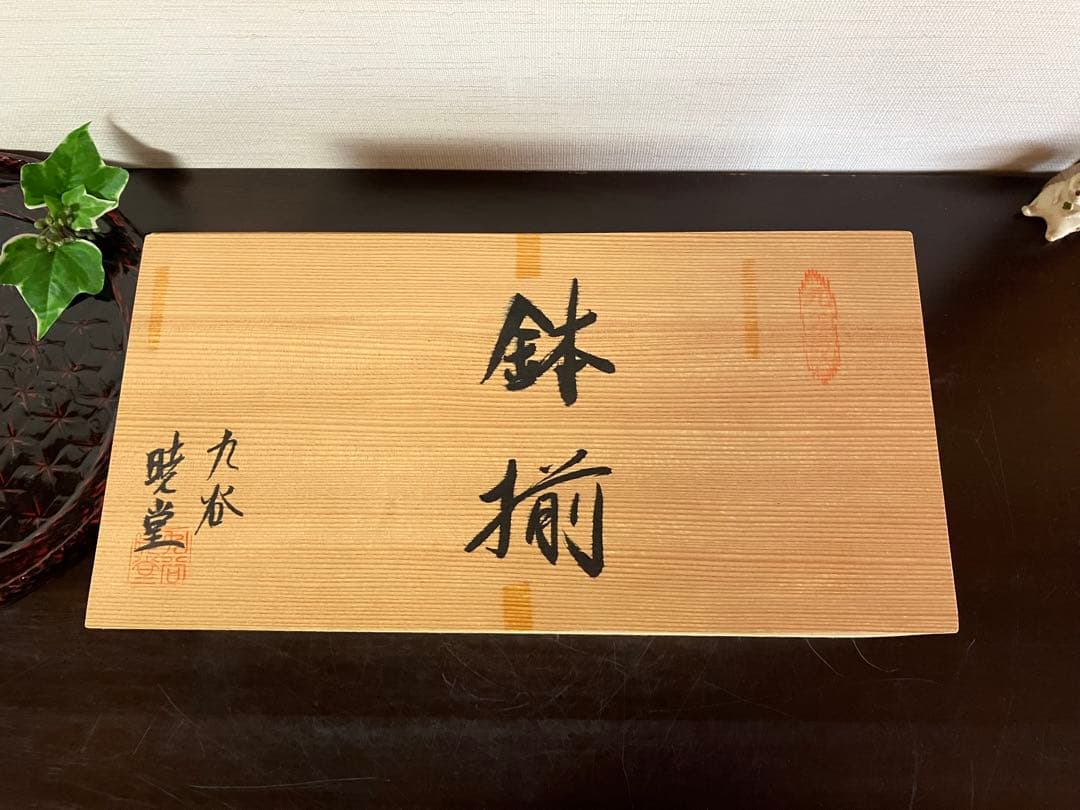 鉢揃
九谷
暁堂